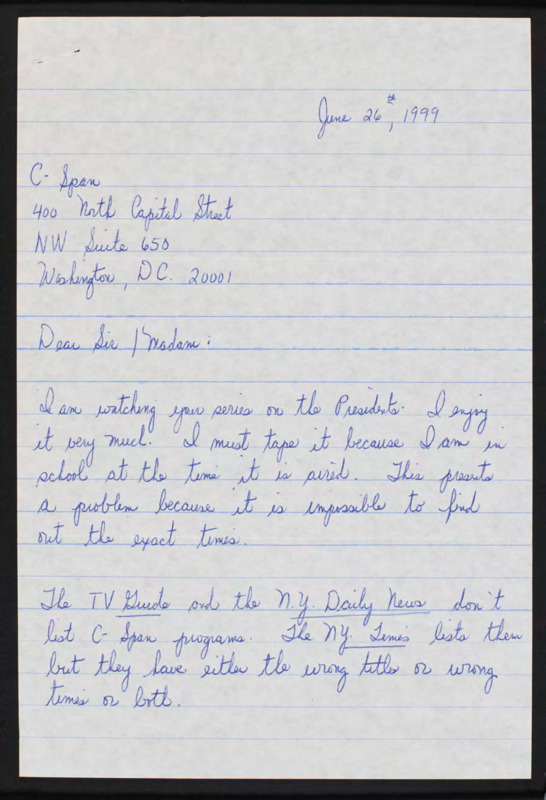 June 26th, 1999
C-Span
400 North Capital Street
NW Suite 650
Washington, DC. 20001
Dear Sir / Madam:
I am watching your series on the Presidents. I enjoy
it very much. I must tape it because I am in
school at the time it is aired. This presents
a problem because it is impossible to find
out the exact times.
The TV Guide and the N.Y. Daily News don't
list C-Span programs. The NY. Times lists them
but they have either the wrong titles or wrong
times or both.